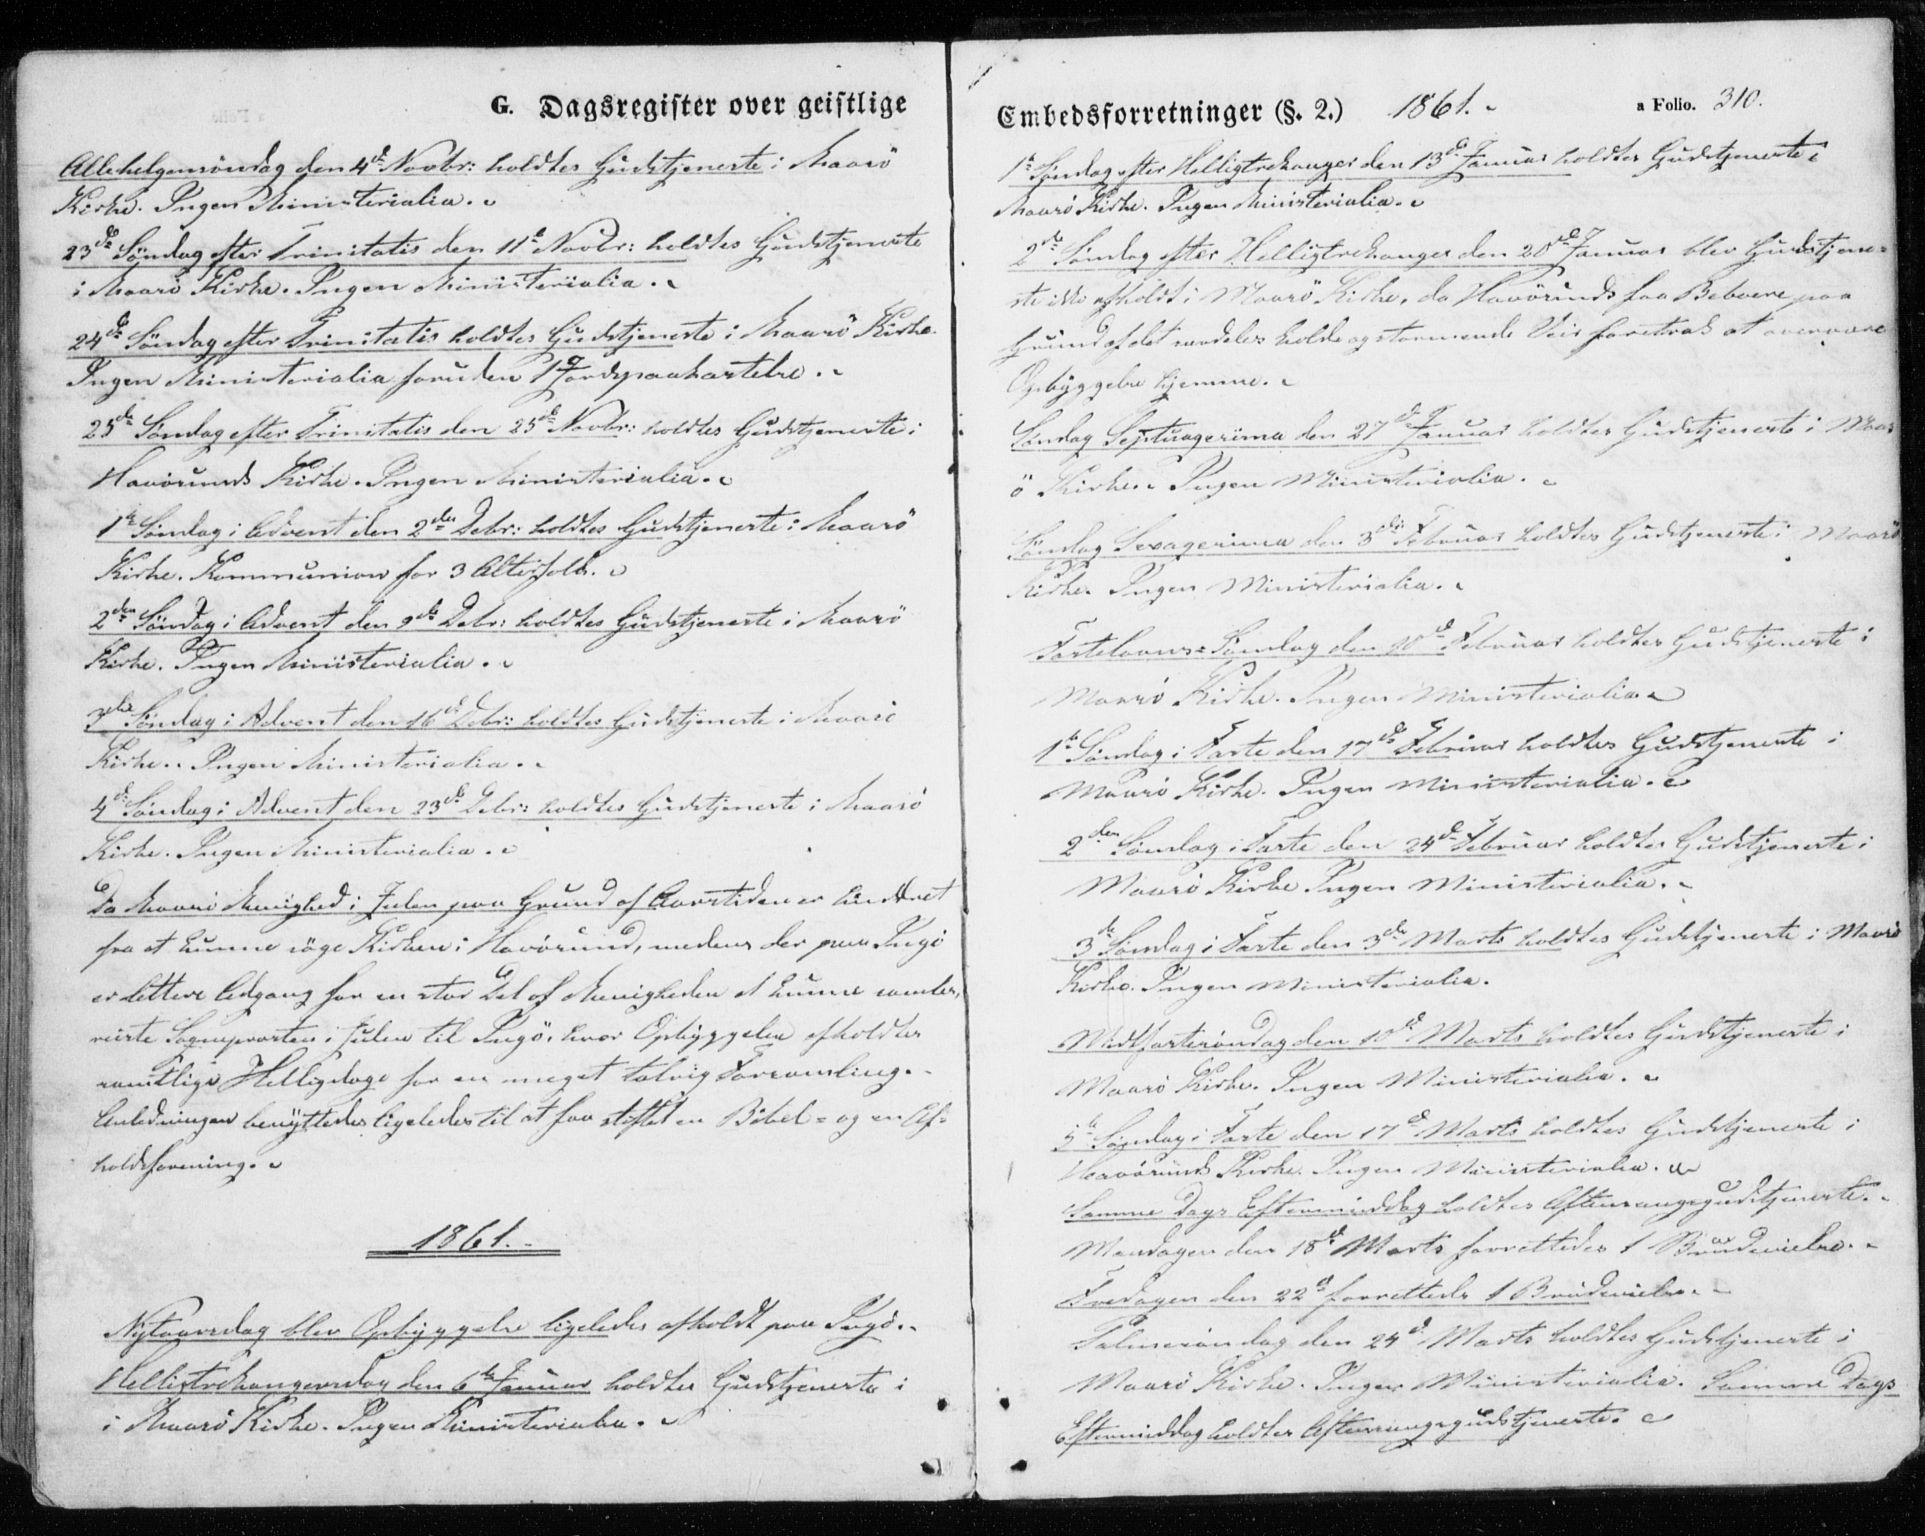 G. Dagsregister over geistlige
Allehelgensöndag den 4de Novbr: holdtes Gudstjeneste i Maasö
Kirke. Ingen Ministerialia.
23de Söndag efter Trinitatis den 11te Novbr: holdtes Gudstjeneste
i Maasö Kirke. Ingen Ministerialia.
24de Söndag efter Trinitatis holdtes Gudstjeneste i Maasö Kirke.
Ingen Ministerialia foruden 1 Jordspaakastelse.
25de Söndag efter Trinitatis den 25de Novbr: holdtes Gudstjeneste i
Havösunds Kirke. Ingen Ministerialia.
1ste Söndag i Advent den 2den Debr: holdtes Gudstjeneste i Maasö
Kirke. Kommunion for 3 Altersfolk.
2den Söndag i Advent den 9de Debr: holdtes Gudstjeneste i Maasö
Kirke. Ingen Ministerialia.
3die Söndag i Advent den 16de Debr: holdtes Gudstjeneste i Maasö
Kirke. Ingen Ministerialia.
4de Söndag i Advent den 23de Debr: holdtes Gudstjeneste i Maasö
Kirke. Ingen Ministerialia.
Da Maasö Menighed i Julen paa Grund af Aarstiden er hindret
fra at kunne söge Kirken i Havösund, medens der paa Ingö
er lettere Adgang for en stor Del af Menigheden at kunne samles,
reiste Sognepresten i Julen til Ingö, hvor Opbyggelse afholdtes
samtlige Helligdage for en meget talrig Forsamling.
Anledningen benyttedes ligeledes til at faa stiftet en Bibel= og en Af=
holdsforening.
1861.
Nytaarsdag blev Opbyggelse ligeledes afholdt paa Ingö.
Hellistrekongersdag den 6te Januar holdtes Gudstjeneste i
i Maasö Kirke. Ingen Ministerialia.
Embedsforretninger (§. 2.) 1861. a Folio. 310.
1ste Söndag efter Helligtrekonger den 13de Januar holdtes Gudstjeneste i
Maasö Kirke. Ingen Ministerialia.
2den Söndag efter Helligtrekonger den 20de Januar blev Gudstjene=
ste ikke afholdt i Maasö Kirke, da Havösunds faa Beboere paa
Grund af det særdeles kolde og stormende Veir foretrak at overvære
Opbyggelse hjemme.
Söndag Septuagesima den 27de Januar holdtes Gudstjeneste i Maas
ö Kirke. Ingen Ministerialia.
Söndag Sexagesima den 3die Februar holdtes Gudstjeneste i Maasö
Kirke. Ingen Ministerialia.
Fastelavns=Söndag den 10de Februar holdtes Gudstjeneste i
Maasö Kirke. Ingen Ministerialia.
1ste Söndag i Faste den 17de Februar holdtes Gudstjeneste i
Maasö Kirke. Ingen Ministerialia.
2den Söndag i Faste den 24de Februar holdtes Gudstjeneste i
Maasö Kirke Ingen Ministerialia.
3de Söndag i Faste den 3die Marts holdtes Gudstjeneste i Maasö
Kirke. Ingen Ministerialia.
Midfastesöndag den 10de Marts holdtes Gudstjeneste i
Maasö Kirke. Ingen Ministerialia.
5te Söndag i Faste den 17de Marts holdtes Gudstjeneste i
Havösunds Kirke. Ingen Ministerialia.
Samme Dags Eftermiddag holdtes Aftensangsgudstjeneste.
Mandagen den 18de Marts forrettedes 1 Brudevielse.
Fredagen den 22de forrettedes 1 Brudevielse.
Palmesöndag den 24de Marts holdtes Gudstjeneste i
Maasö Kirke. Ingen Ministerialia. Samme Dags
Eftermiddag holdtes Aftensangsgudstjeneste.